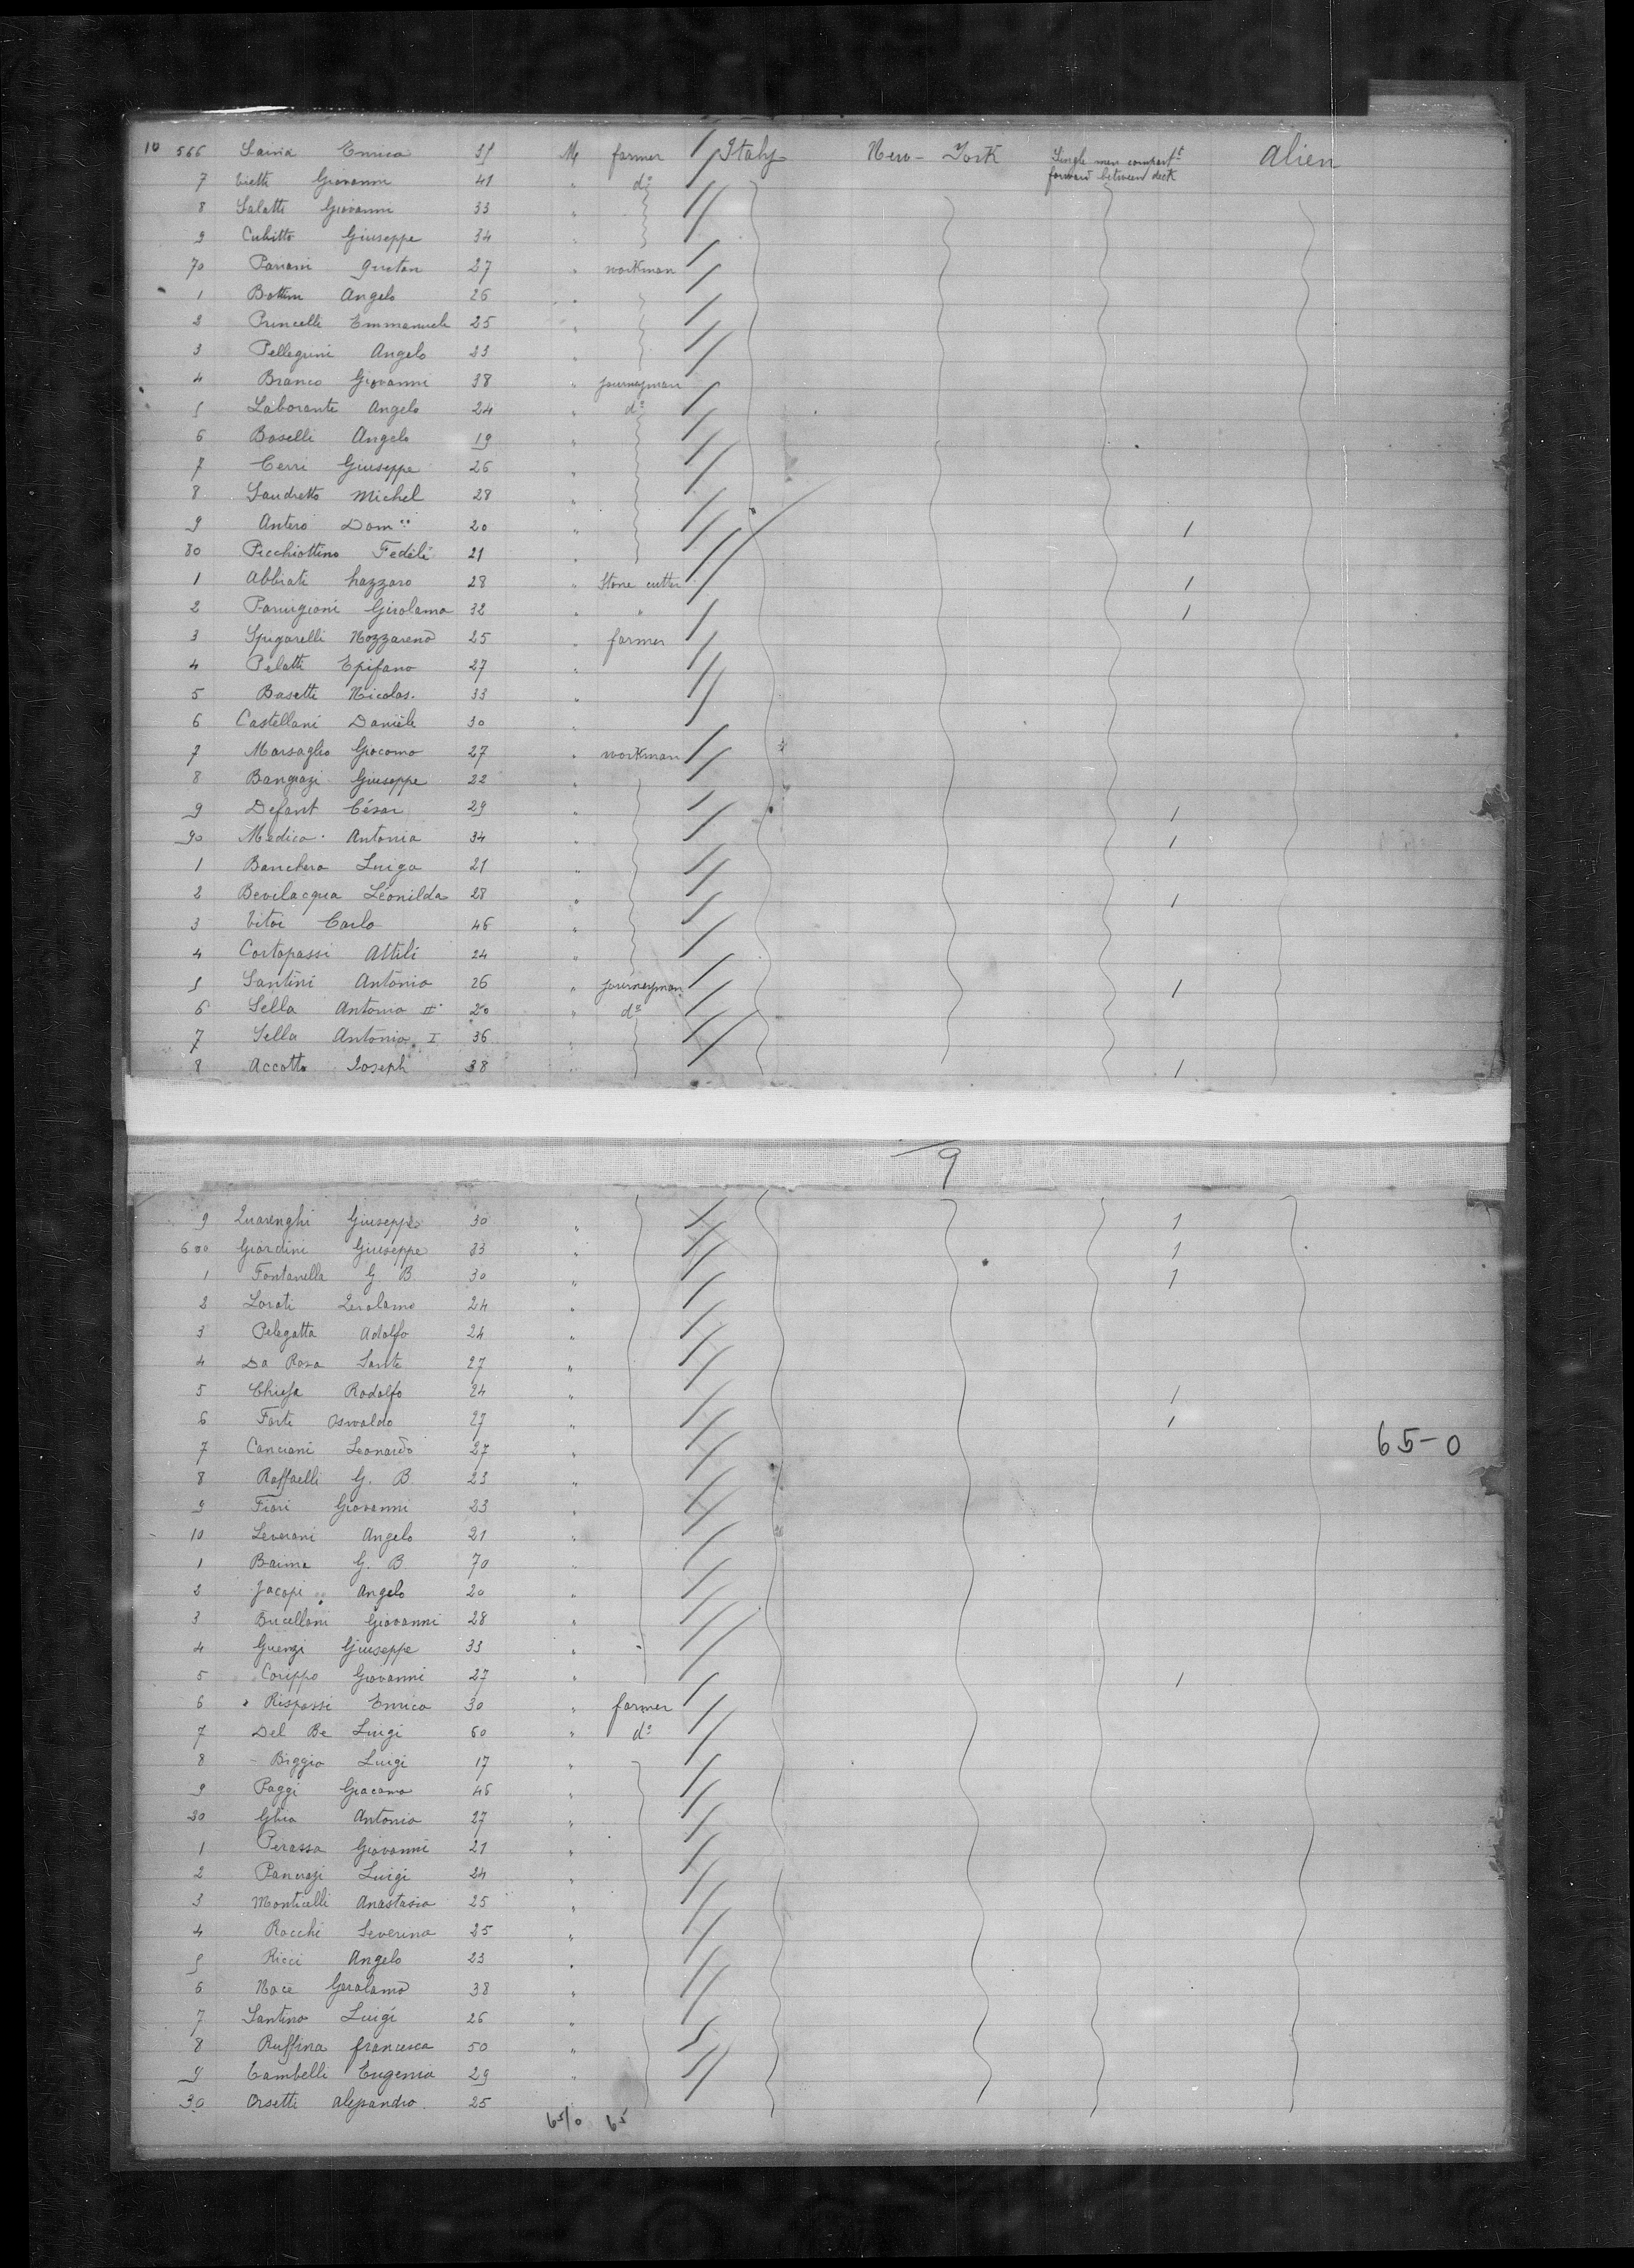 10 566 Enrico M. farmer Italy New-York Single men compartt forward between deck Alien
7 Vietti Giovanni 41 " do
8 Salatti Giovanni 33 "
9 Cubitto Giuseppe 34 "
70 27 " workman
1 Bottini Angelo 26 "
2 Princelli Emmanuele 25 "
3 Pellegrini Angelo 23 "
4 Branco Giovanni 38 " journeyman
5 Laborante Angelo 24 " do
6 Boselli Angelo 19 "
7 Cerri Giuseppe 26 "
8 Sandretto Michel 28 "
9 Antero Dom.co 20 " 1
80 Picchiottino Fedeli 21 "
1 Abbiati Lazzaro 28 " Stone cutter 1
2 Parmigiani Girolamo 32 " " 1
3 Spigarelli Nozzareno 25 " farmer
4 Pelatti Epifano 27 "
5 Basetti Nicolas. 33 "
6 Castellani Danièle 30 "
7 Marsaglio Giocomo 27 " workman
8 Bangrazi Giuseppe 22 "
9 Defant César 29 " 1
90 Medico Antonia 34 " 1
1 Banchero Luiga 21 "
2 Bevilacqua Léonilda 28 " 1
3 Vitoi Carlo 46 "
4 Cortopassi Attili 24 "
5 Santini Antonio 26 " journeyman 1
6 Sella Antonio II 20 " do
7 Sella Antonio I 36
8 Accotto Joseph 38 " 1
9
9 Quarenghi Giuseppe 30 " 1
600 Giardini Giuseppe 33 " 1
1 Fontanella G. B. 30 " 1
2 Lorati 24 "
3 Pelegatta Adolfo 24 "
4 Da Rosa Sante 27 "
5 Chiesa Rodolfo 24 " 1
6 Forti Oswaldo 27 " 1
7 Canciani Leonardo 27 " 65-0
8 Raffaelli G. B. 23 "
9 Fiori Giovanni 23 "
10 Severani Angelo 21 "
1 G. B. 70 "
2 Jacopi Angelo 20 "
3 Bucellani Giovanni 28 "
4 Guenzi Giuseppe 33 "
5 Corippo Giovanni 27 " 1
6 Rispossi Enrico 30 " farmer
7 Del Be Luigi 60 " do
8 Biggio Luigi 17 "
9 Poggi Giacomo 46 "
20 Ghio Antonio 27 "
1 Perasso Giovanni 21 "
2 Pancrazi Luigi 24 "
3 Monticelli Anastasio 25 "
4 Rocchi Severino 25 "
5 Ricci Angelo 23 "
6 Noce Gerolamo 38 "
7 Santino Luigi 26 "
8 Ruffina francesca 50 "
9 Tambelli Eugenia 29 "
30 Orsetti Alessandro. 25
65/0 65